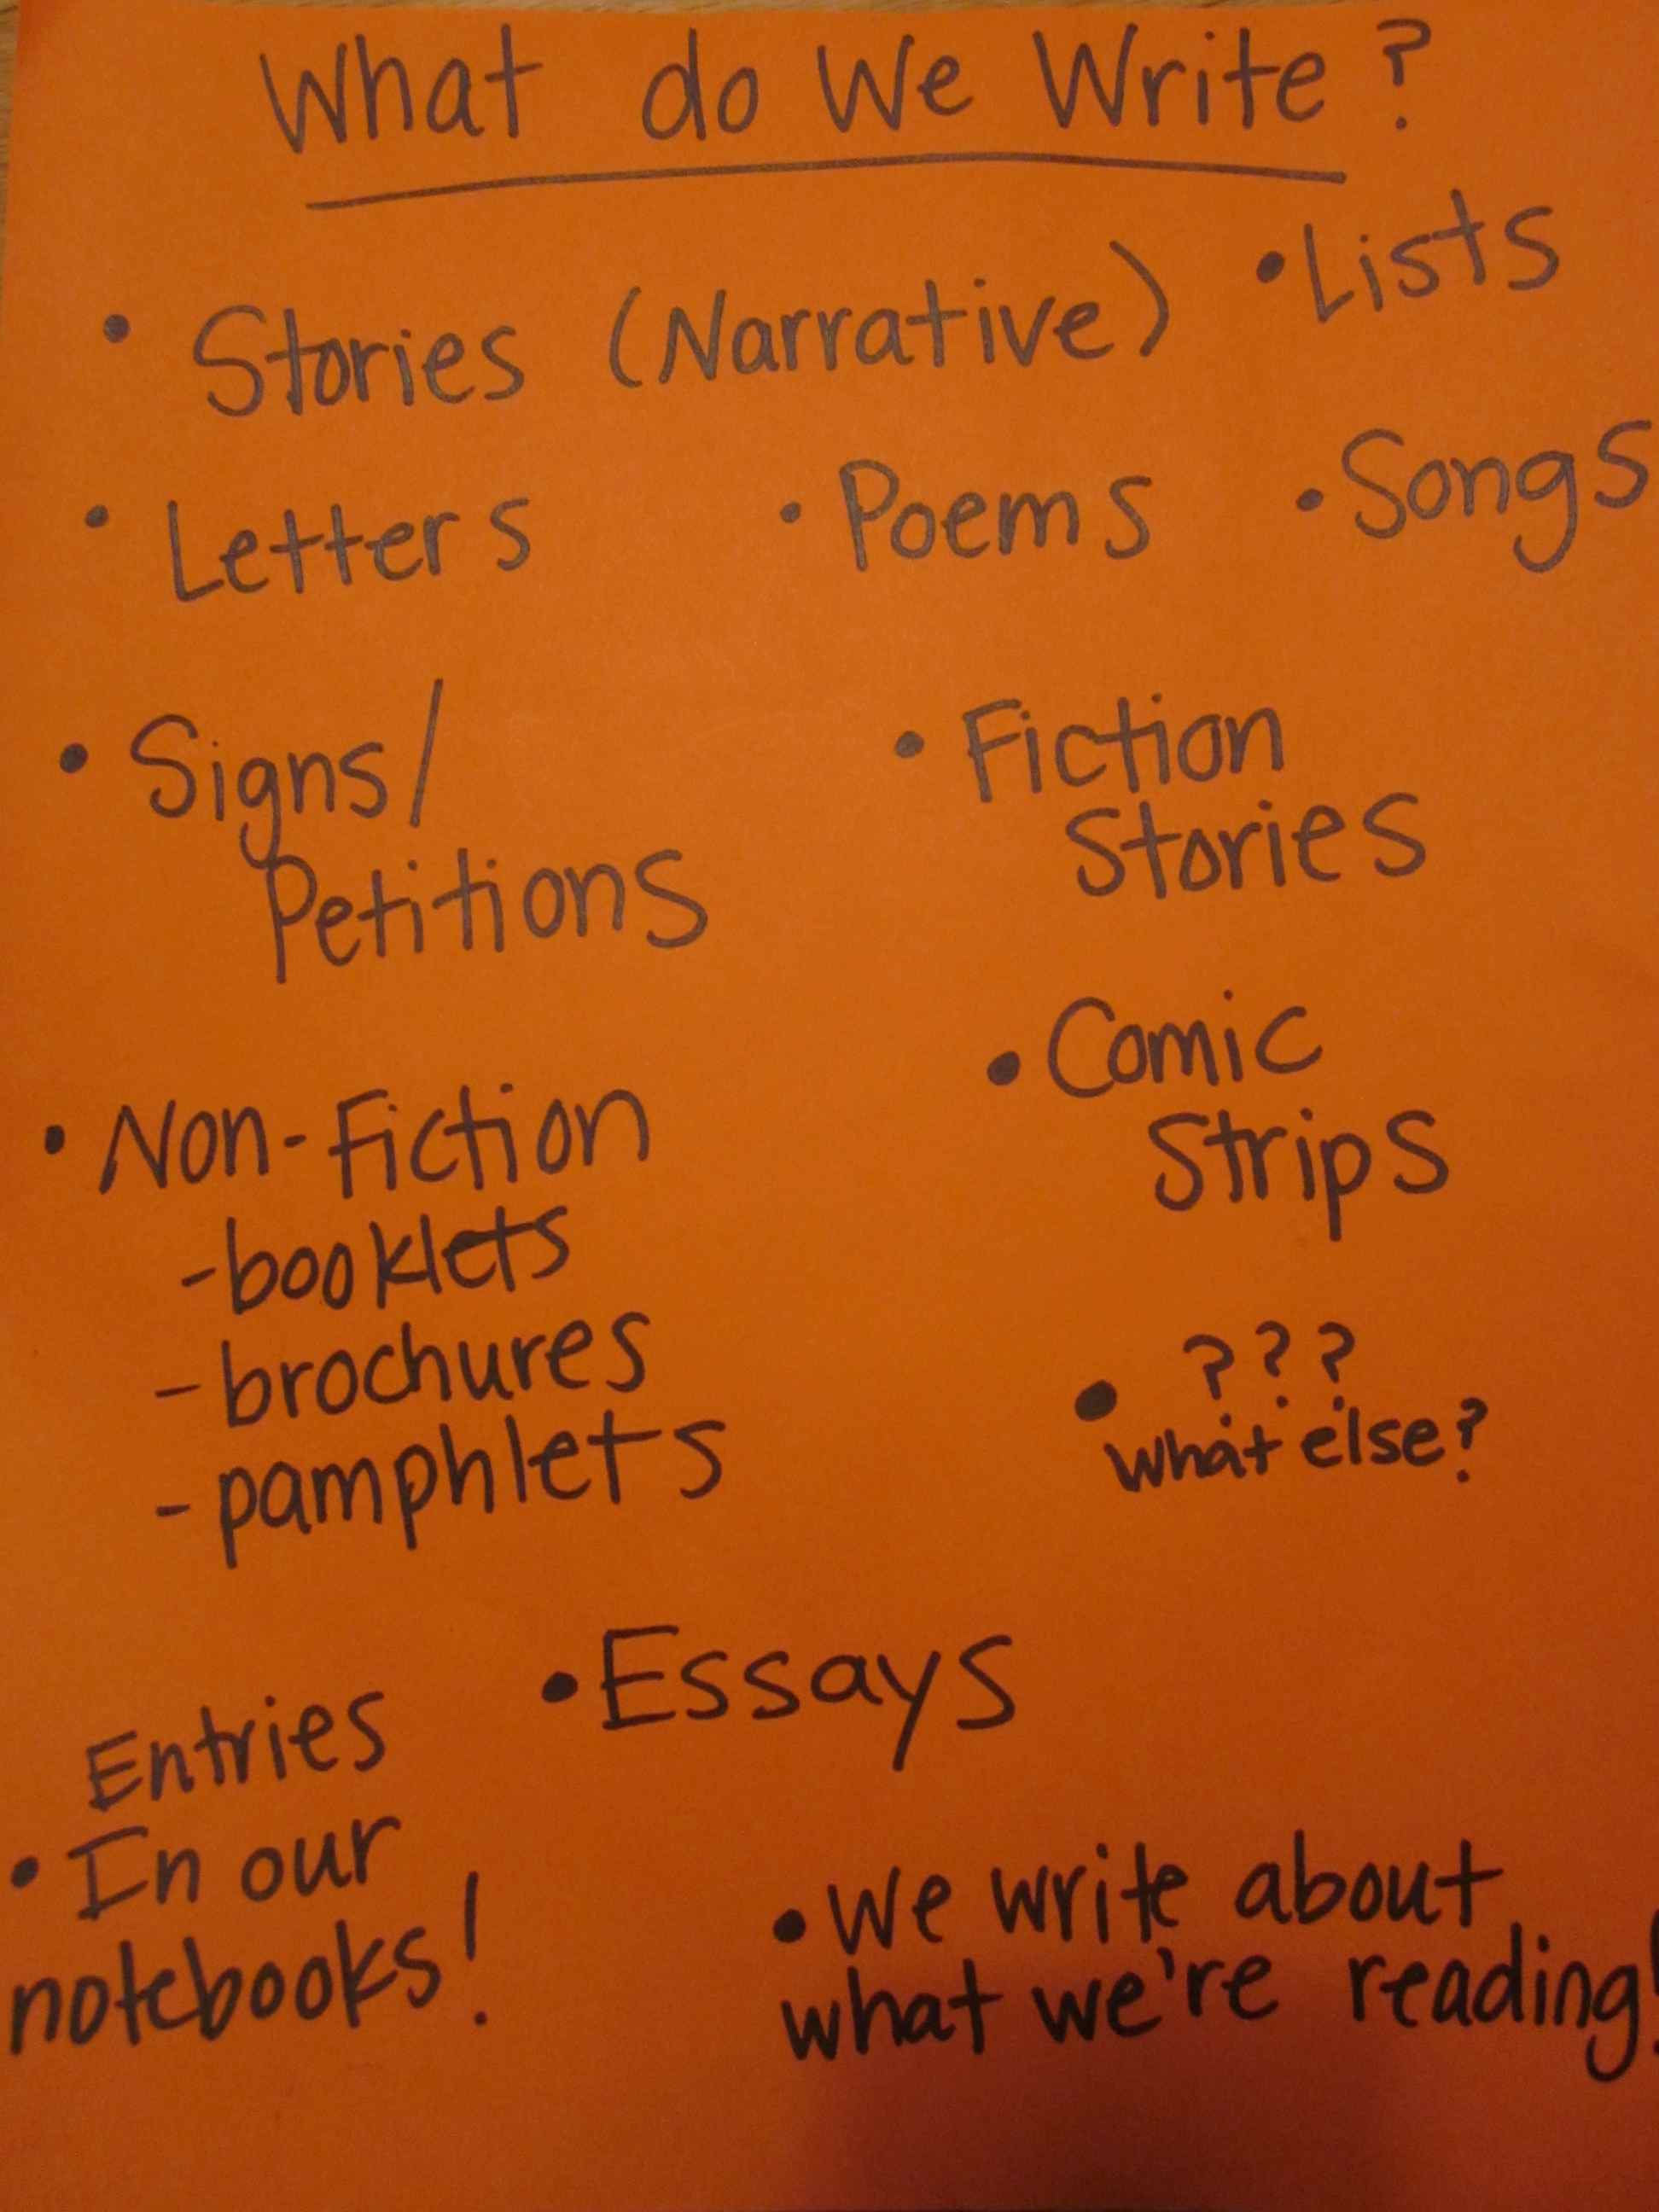 What do We Write?
• Stories (Narrative) • Lists
• Letters • Poems • Songs
• Signs/
Petitions
• Fiction
Stories
• Comic
Strips
• Non-Fiction
-booklets
-brochures
-pamphlets
• ???
what else?
• Essays
Entries
• In our
notebooks!
• We write about
what we're reading!